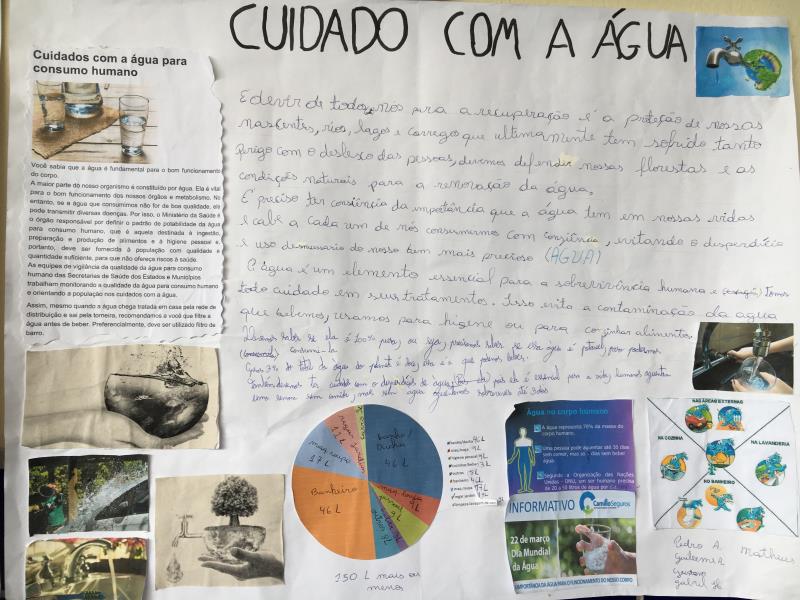 CUIDADO COM A ÁGUA
Cuidados com a água para
consumo humano
Você sabia que a água é fundamental para o bom funcionamento
do corpo.
A maior parte do nosso organismo é constituído por água. Ela é vital
para o bom funcionamento dos nossos órgãos e metabolismo. No
entanto, se a água que consumimos não for de boa qualidade, ela
pode transmitir diversas doenças. Por isso, o Ministério da Saúde é
o órgão responsável por definir o padrão de potabilidade da água
para consumo humano, que é aquela destinada à ingestão,
preparação e produção de alimentos e à higiene pessoal e,
portanto, deve ser fornecida à população com qualidade e
quantidade suficiente, para que não ofereça riscos à saúde.
As equipes de vigilância da qualidade da água para consumo
humano das Secretarias de Saúde dos Estados e Municípios
trabalham monitorando a qualidade da água para consumo humano
e orientando a população nos cuidados com a água.
Assim, mesmo quando a água chega tratada em casa pela rede de
distribuição e sai pela torneira, recomendamos a você que filtre a
água antes de beber. Preferencialmente, deve ser utilizado filtro de
barro.
E dever de todos nós para a recuperação e a proteção de nossas
nascentes, rios, lagos e corregos que ultimamente tem sofrido tanto
perigo com o desleixo das pessoas, devemos defender nossas florestas e as
condições naturais para a renovação da água.
É preciso ter consiência da importância que a água tem em nossas vidas
e cabe a cada um de nós consumirmos com consiência, evitando o desperdício
e uso do nosso bem mais precioso (ÁGUA)
A água é um elemento essencial para a sobrevivência humana e Temos
todo cuidado em seus tratamentos. Isso evita a contaminação da agua
que bebemos, usamos para higiene ou para cozinhar alimentos.
Devemos saber se ela é 100% pura, ou seja, precisamos saber se essa água é potável, para podermos
consumi-la
3% do total da água do planeta é doce, e que podemos beber.
Também devemos ter cuidado com o desperdício de água, pois ela é essencial para a vida, humanos aguentam
uma semana sem comida, mais sem água aguentamos sobreviver até 3 dias
Banho/
Ducha
46 L
mag. louça
9L
outros 8L
Banheiro
46 L
maq. roupa
17 L
regar Jardim
11 L
150 L mais ou
menos
Água no corpo humano
A água representa 70% da massa do
corpo humano.
Uma pessoa pode aguentar até 50 dias
sem comer, mas só - dias sem beber
água.
Segundo a Organização das Nações
Unidas - ONU, um ser humano precisa
de 20 a 50 litros de água por
INFORMATIVO
Camillo Seguros
22 de março
Dia Mundial
da Água
IMPORTÂNCIA DA ÁGUA PARA O FUNCIONAMENTO DO NOSSO CORPO
NAS ÁREAS EXTERNAS
NA COZINHA
NA LAVANDERIA
NO BANHEIRO
Pedro A.
Matheus
Guilherme R.
Gustavo
gabriel H